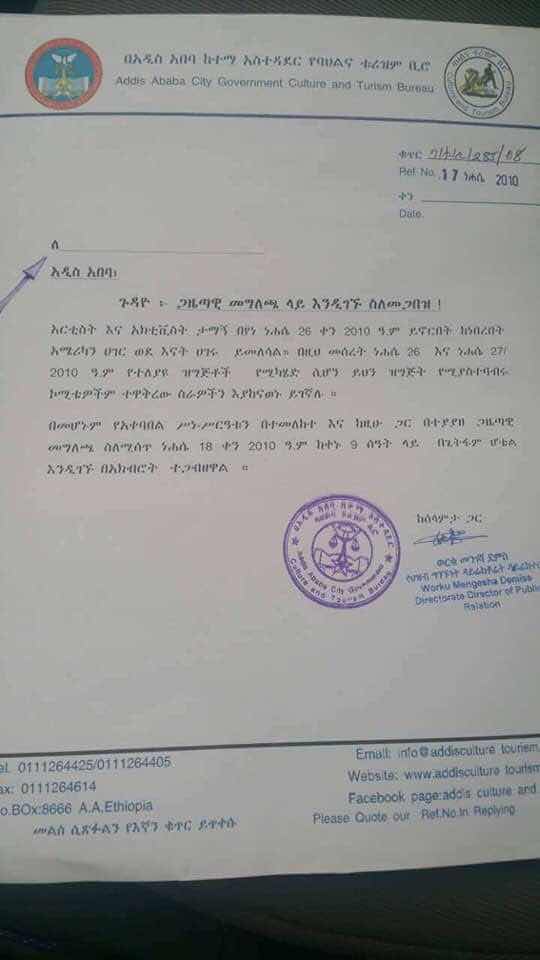 በአዲስ አበባ ከተማ አስተዳደር የባህልና ቱሪዝም ቢሮ
Addis Ababa City Government Culture and Turism Bureau
ቁጥር
Ref No. 17 ነሐሴ 2010
ቀን
Date.
ለ
አዲስ አበባ፣
ጉዳዮ ፡- ጋዜጣዊ መግለጫ ላይ እንዲገኙ ስለመጋበዝ !
አርቲስት እና አክቲቪስት ታማኝ በየነ ነሐሴ 26 ቀን 2010 ዓ.ም ይኖርበት ከነበረበት
አሜሪካን ሀገር ወደ እናት ሀገሩ ይመለሳል። በዚህ መሰረት ነሐሴ 26 እና ነሐሴ 27/
2010 ዓ.ም የተለያዩ ዝግጅቶች የሚካሄድ ሲሆን ይህን ዝግጅት የሚያስተባብሩ
ኮሚቴዎችም ተዋቅረው ስራዎችን እያከናወኑ ይገኛሉ ።
በመሆኑም የአቀባበል ሥነ-ሥርዓቱን በተመለከተ እና ከዚሁ ጋር በተያያዘ ጋዜጣዊ
መግለጫ ስለሚሰጥ ነሐሴ 18 ቀን 2010 ዓ.ም ከቀኑ 9 ሰዓት ላይ በጌትፋም ሆቴል
እንዲገኙ በአክብሮት ተጋብዘዋል ።
ከሰላምታ ጋር
ወርቁ መንገሻ ደምሴ
Worku Mengesha Demisse
Directorate Director of Public
Ralation
Addis Ababa City Government
Culture and Tourism Bureau
Tel. 0111264425/0111264405
Fax: 0111264614
P.o.BOx:8666 A.A.Ethiopia
መልስ ሲጽፉልን የእኛን ቁጥር ይጥቀሱ
Email: info@addisculture tourism.
Website: www.addisculture tourism
Facebook page:addis culture and
Please Quote our Ref.No.In Replying